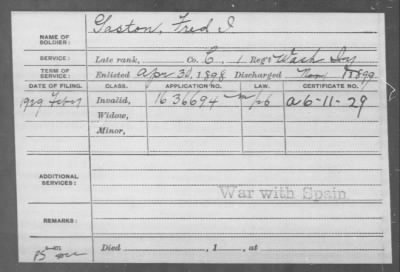 NAME OF SOLDIER: Gaston, Fred I
SERVICE: Late rank, Co. E, 1 Reg't Wash Inf
TERM OF SERVICE: Enlisted Apr 30, 1898 Discharged Nov 1, 1899
DATE OF FILING. CLASS. APPLICATION NO. LAW. CERTIFICATE NO.
1929 Invalid, 1636694 a 6-11-29
Widow,
Minor,
ADDITIONAL SERVICES:
War with Spain
REMARKS:
Died , 1 , at